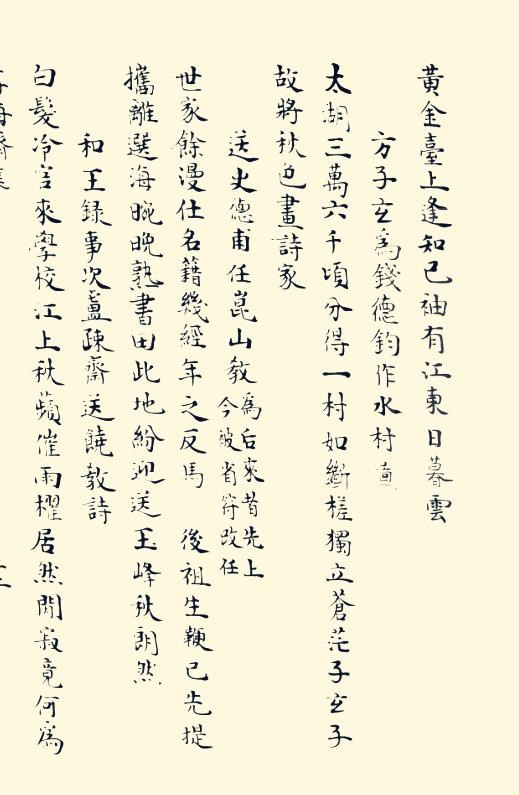 黃金臺上逢知己袖有江東日暮雲
方子玄為錢德鈞作水村
太湖三萬六千頃分得一村如斷槎獨立蒼茫子玄子
故將秋色畫詩家
送史德甫任崑山教
為后來昔先上
今被省符改任
世家餘漫仕名籍幾經年之反馬 後祖生鞭已先提
攜離選海晼晚熟書田此地紛迎送玉峰秋朗然
和王録事次盧疎齋送饒教詩
白髮冷官來學校江上秋蘋催雨櫂居然閑寂竟何為